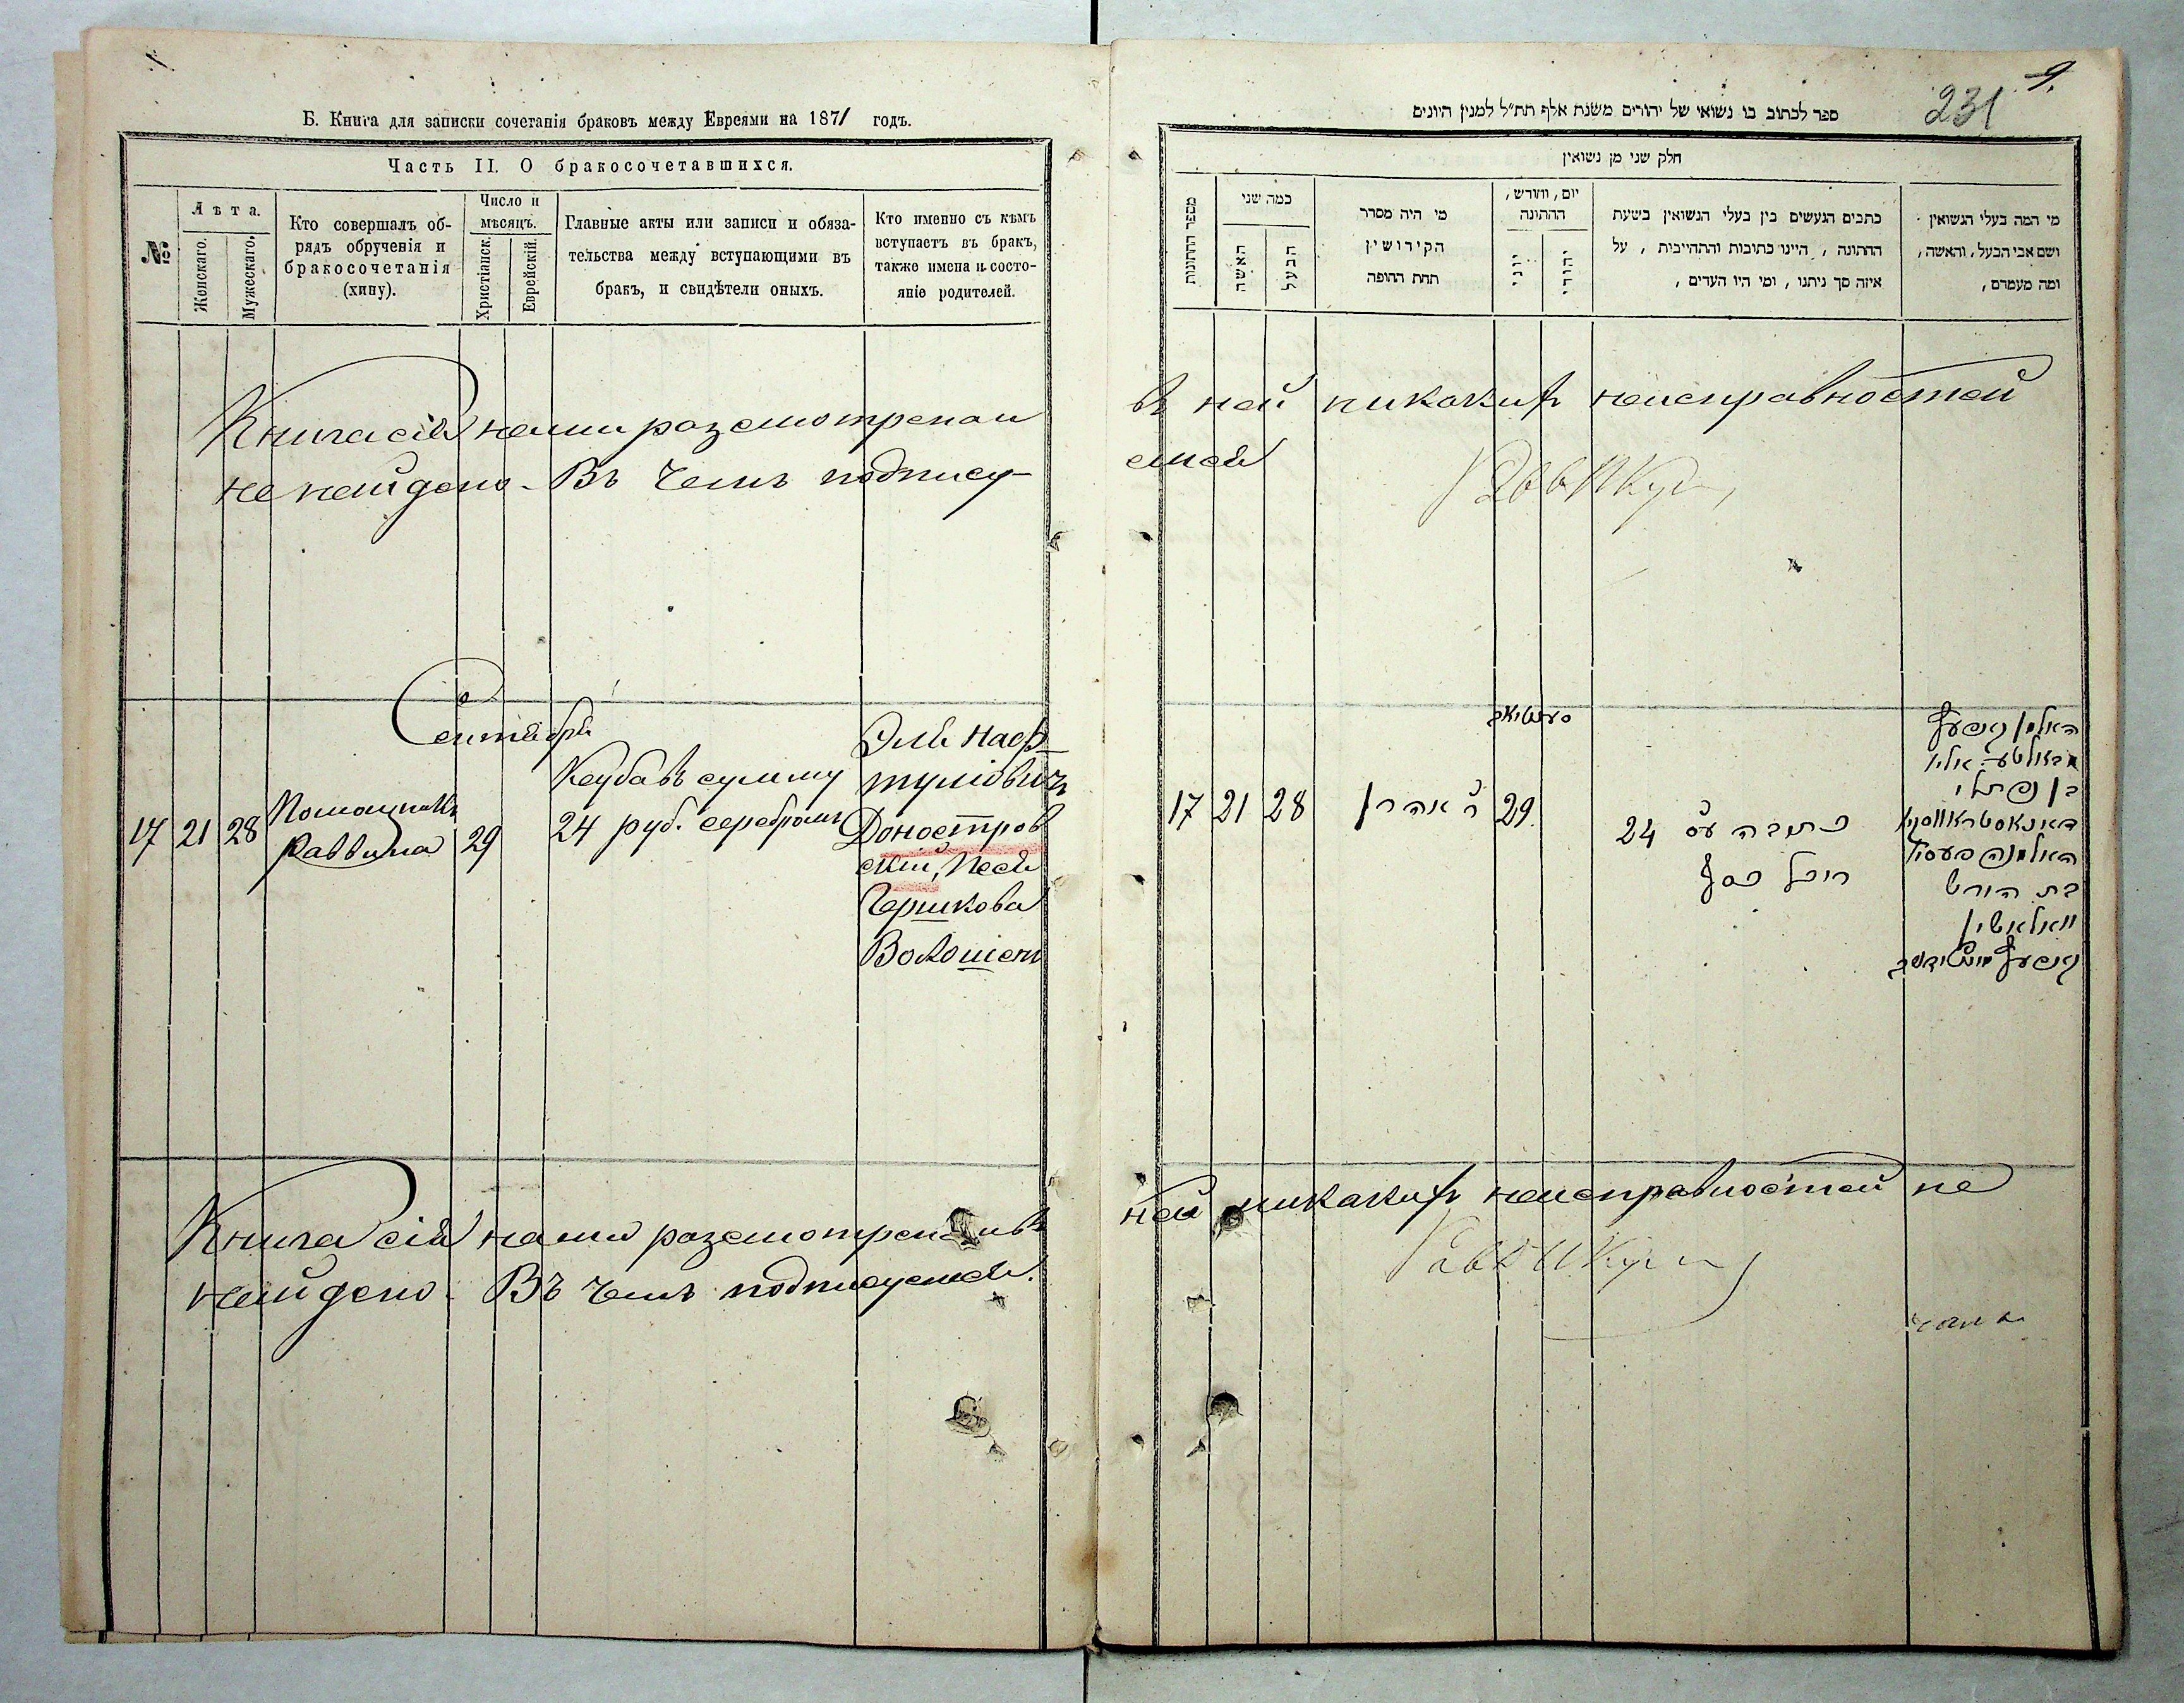 Б. Книга для записки сочетанія браковъ между Евреями на 1871 годъ.
Часть II. О бракосочетавшихся.
№
Лѣта.
Женскаго.
Мужескаго.
Кто совершалъ об-
рядъ обрученія и
бракосочетанія
(хипу).
Число и
мѣсяцъ.
Христіанск.
Еврейскій.
Главные акты или записи и обяза-
тельства между вступающими въ
бракъ, и свидѣтели оныхъ.
Кто именно съ кѣмъ
вступаетъ въ бракъ,
также имена и состо-
яніе родителей.
Книга сія нами разсмотрена и
не найдено. Въ чемъ подпису-
Сентябрь
17 21 28
Помощникъ
Раввина
29
Кеуба въ сумму
24 руб. серебромъ
Эля Наф-
туліовичъ
Доностров
скій, Песя
Гершкова
Волошен
Книга сія нами разсмотрена и въ
найдено. Въ чемъ подписуемся.
9.
231
ספר לכתוב בו נשואי של יהודים משנת אלף תת״ל למנין היונים
חלק שני מן נשואין
מספר החתונות
כמה שני
האשה
הבעל
מי היה מסדר
הקידושין
תחת החופה
יום, וחודש,
החתונה
יוני
יהודי
כתבים הנעשים בין בעלי הנשואין בשעת
החתונה, היינו כתובות והתחייבות, על
איזה סך ניתנו, ומי היו העדים,
מי המה בעלי הנשואין
ושם אבי הבעל, והאשה,
ומה מעמדם,
въ ней никакихъ неисправностей
емся
17 21 28
ר׳ אהרן
29
כתובה עס 24
רובל כסף
האלמן
בן נפתלי
דאנאסטראווסקי
האלמנה פעסי
בת הירש
וואלאשין
ней никакихъ неисправностей не